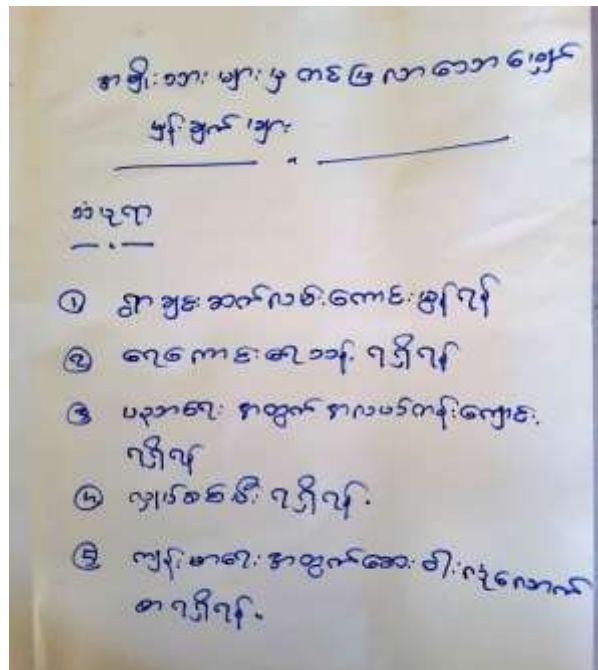 အမျိုးသား များ မှ တင်ပြ လာ သော မျှော်
မှန်းချက် များ
သံဃုရာ
① ရွာ ချင်း ဆက်လမ်းကောင်း မွန် ရန်
② ရေကောင်း ရေသန့် ရရှိရန်
③ ပညာရေး အတွက် အလယ်တန်းကျောင်း
ရရှိရန်
④ လျှပ်စစ်မီး ရရှိရန်.
⑤ ကျန်းမာရေး အတွက် ဆေး ဝါး လုံလောက်
စွာ ရရှိရန်.